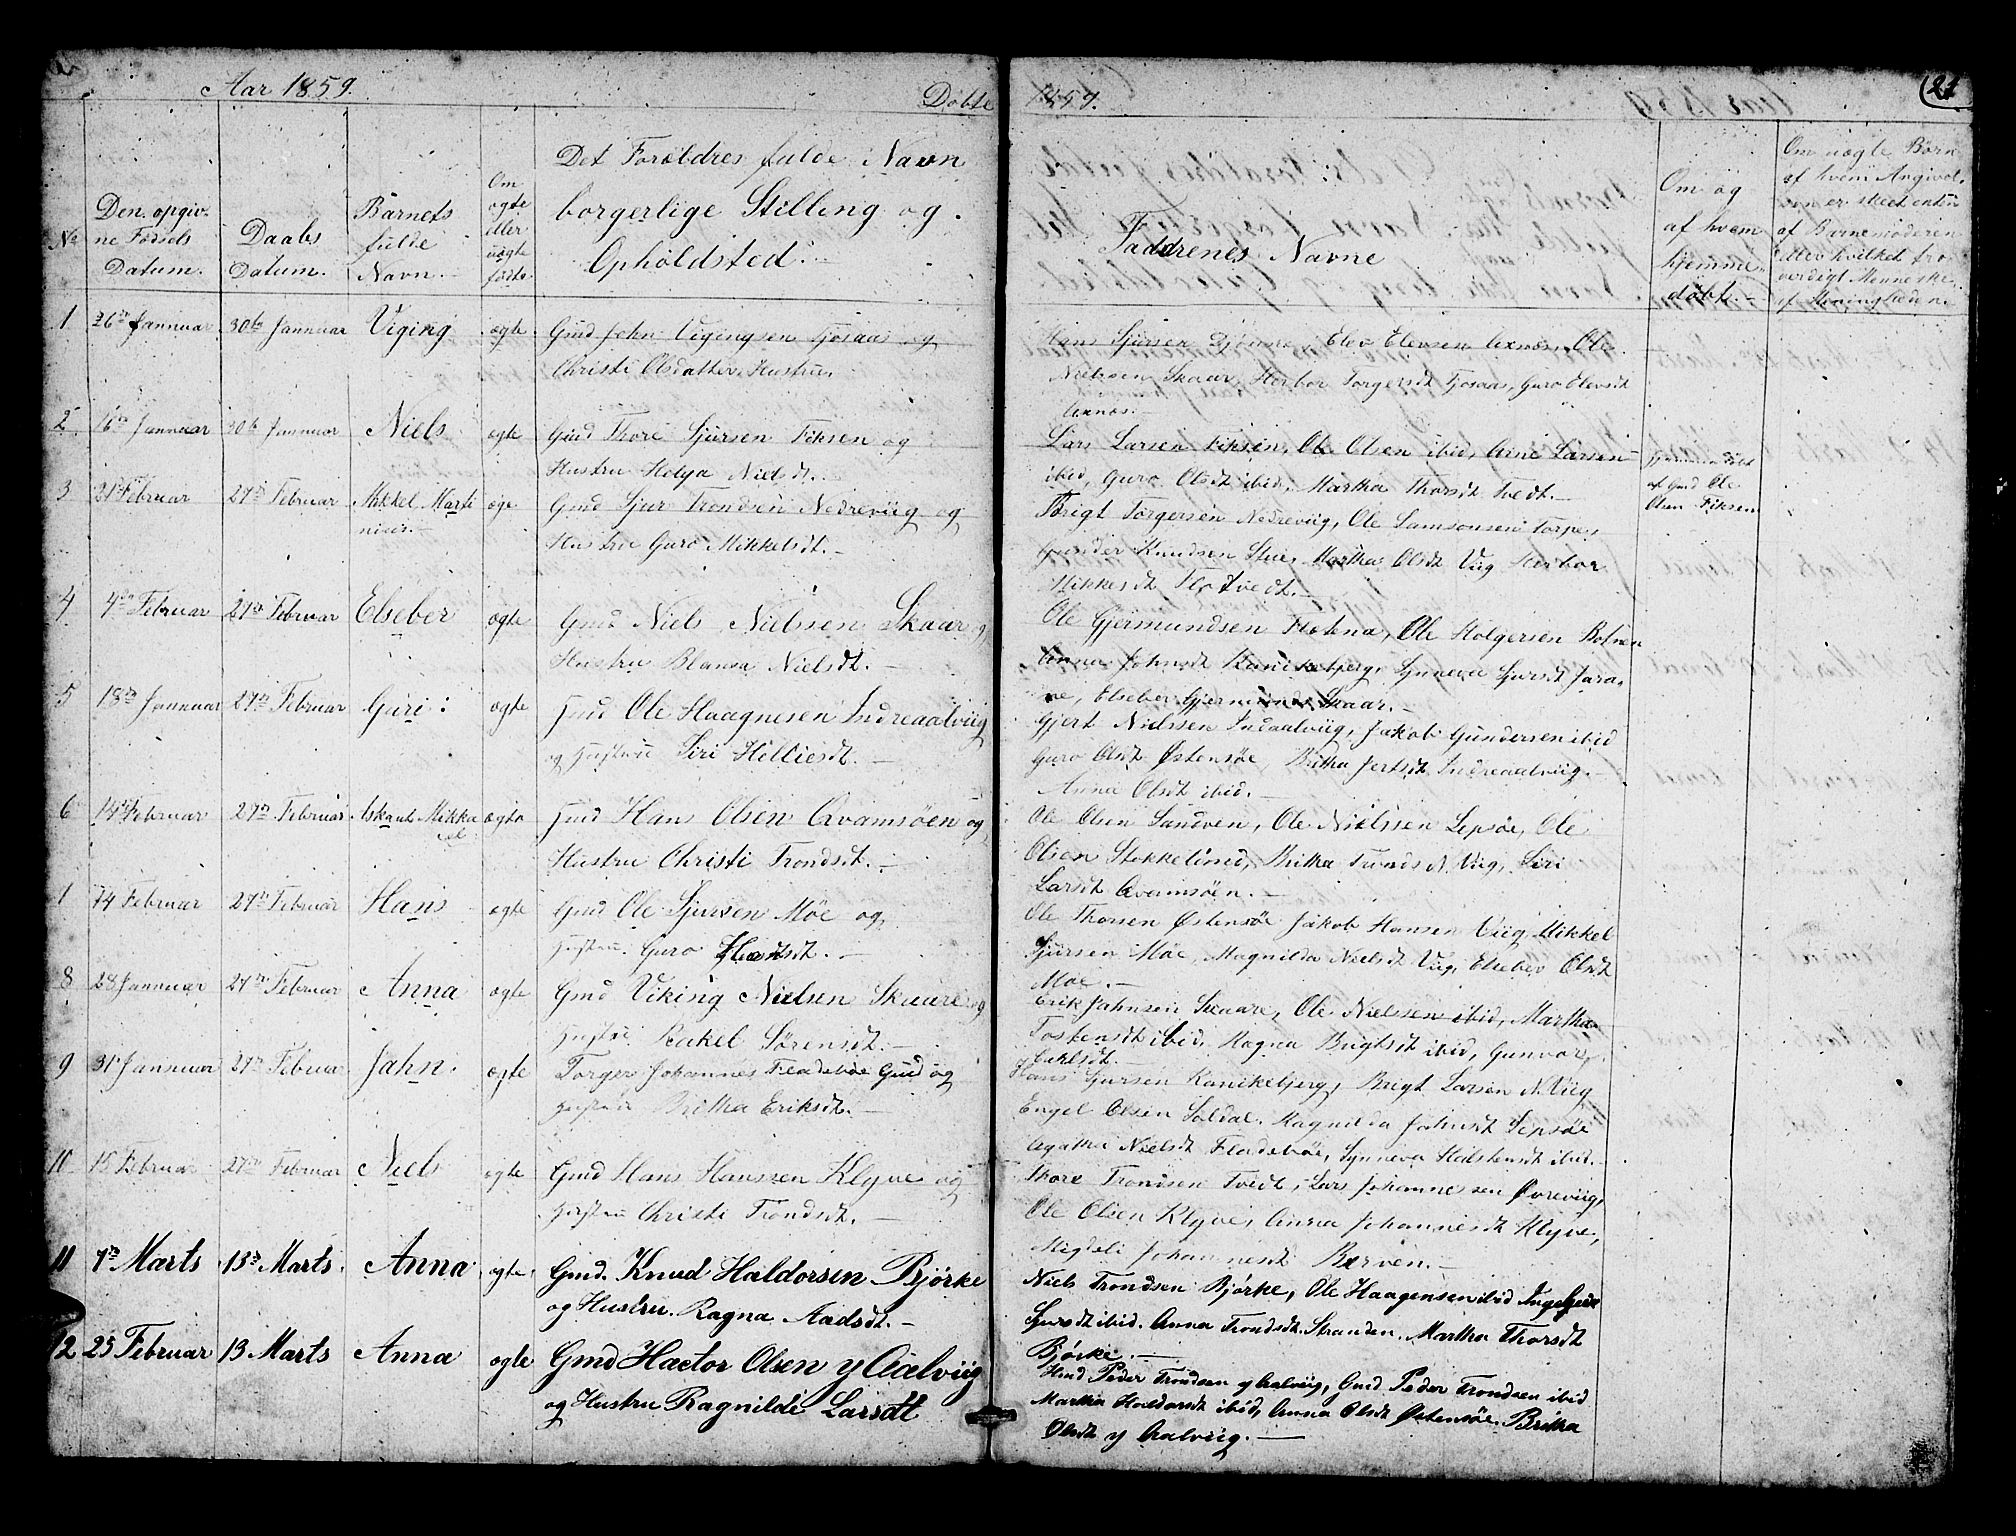 Aar 1859.
Døbte 1859.
21
No
Den opgiv-
ne Fødsels
Datum.
Daabs
Datum.
Barnets
fulde
Navn.
Om
ægte
eller
uægte
fødte.
Det Forældres fulde Navn
borgerlige Stilling og
Opholdsted.
Faddrenes Navne
Om og
af hvem
hjemme-
døbt.
Om uægte Børn
af hvem Angivel-
sen er skeet enten
af Barnemoderen
eller hvilket tro-
værdigt Menneske
af Menigheden.
1 26de Januar 30te Januar Viging ægte Gmd John Vigingsen Tjosaas og
Christi Olsdatter Hustru.
Hans Sjursen Djønne, Elev Elevsen Axnæs, Ole
Nielsen Skaar, Herbor Torgersdt Tjosaas, Guro Elevsdt
Axnæs.
2 16de Januar 30te Januar Niels ægte Gmd Thore Sjursen Fiksen og
Hustru Helga Nielsdt.
Lars Larsen Fiksen, Ole Olsen ibid, Arne Larsen
ibid, Guro Olsdt ibid, Martha Thorsdt Tvedt.
hjemmedøbt
af Gmd Ole
Olsen Fiksen
3 21 Februar 27de Februar Mikkel Marti
nius ægte Gmd Sjur Trondsen Nedreviig og
Hustru Guro Mikkelsdt.
Brigt Torgersen Nedreviig, Ole Samsonsen Torpe,
Gunder Knudsen Stue, Martha Olsdt Viig Herbor
Mikkelsdt Flotvedt.
4 4de Februar 27de Februar Elseber ægte Gmd Niels Nielssen Skaar og
Hustru Blansa Nielsdt.
Ole Gjermundsen Flotena, Ole Holgersen Botnen
Anna Johnsdt Kanikebjerg, Synneva Sjursdt Jara-
ne, Elseber Gjermunds. Skaar.
5 18de Januar 27de Februar Guri ægte Gmd Ole Haagnesen Indreaalviig
og Hustru Siri Helliesdt.
Gjert Nielssen Indaalviig, Jakob Gundersen ibid
Guro Olsdt Østensøe, Britha Jertsdt Indreaalviig.
Anna Olsdt ibid.
6 14de Februar 27de Februar Askaut Mikka
el ægte Gmd Hans Olsen Qvamsøen og
Hustru Christi Trondsdt.
Ole Olsen Sandven, Ole Nielssen Lepsøe, Ole
Olsen Stekkelind, Britha Trondsd. N. Viig, Siri
Larsdt Qvamsøen.
1 14 Februar 27de Februar Hans ægte Gmd Ole Sjursen Møe og
Hustru Guro Hansdt.
Ole Thorsen Østensøe Jakob Hansen Viig Mikkel
Sjursen Møe, Magnilda Nielsdt Viig, Elseber Olsdt
Møe.
8 28 Januar 27de Februar Anna ægte Gmd Viking Nielsen Skaare og
Hustru Rakel Sørensdt.
Erik Jahnsen Skaare, Ole Nielssen ibid, Martha
Tostensdt ibid, Ragna Brigtsdt ibid, Gunvor
9 31 Januar 27de Februar Jahn ægte Torger Johannes Fladebøe Gmd og
Hustru Britha Eriksdt.
Hans Sjursen Kanikebjerg, Brigt Larsen N. Viig
Engel Olsen Soldal. Ragnilda Johnsdt Lepsøe
Agatha Nielsdt Fladebøe, Synneva Halstensdt ibid.
10 15 Februar 27de Februar Niels ægte Gmd Hans Hanssen Klyve og
Hustru Christi Trondsdt.
Thore Trondsen Tvedt, Lars Johannesen Øvreviig,
Ole Olsen Klyve, Anna Johannesdt Klyve,
Migdeli Johannesdt Berven.
11 7de Marts 13de Marts Anna ægte Gmd. Knud Haldorsen Bjørke
og Hustru Ragna Aadsdt.
Niels Trondsen Bjørke, Ole Haagensen ibid Ingegjerd
Sjursdt ibid. Anna Trondsdt. Stranden, Martha Thorsdt
Bjørke.
12 25 Februar 13 Marts Anna ægte Gmd Hactor Olsen y Aalviig
og Hustru Ragnilde Larsdt
Hmd Peder Trondsen y Aalviig, Gmd Peder Trondsen ibid
Martha Haldorsdt ibid, Anna Olsdt Østensøe. Britha
Olsdt y Aalviig.